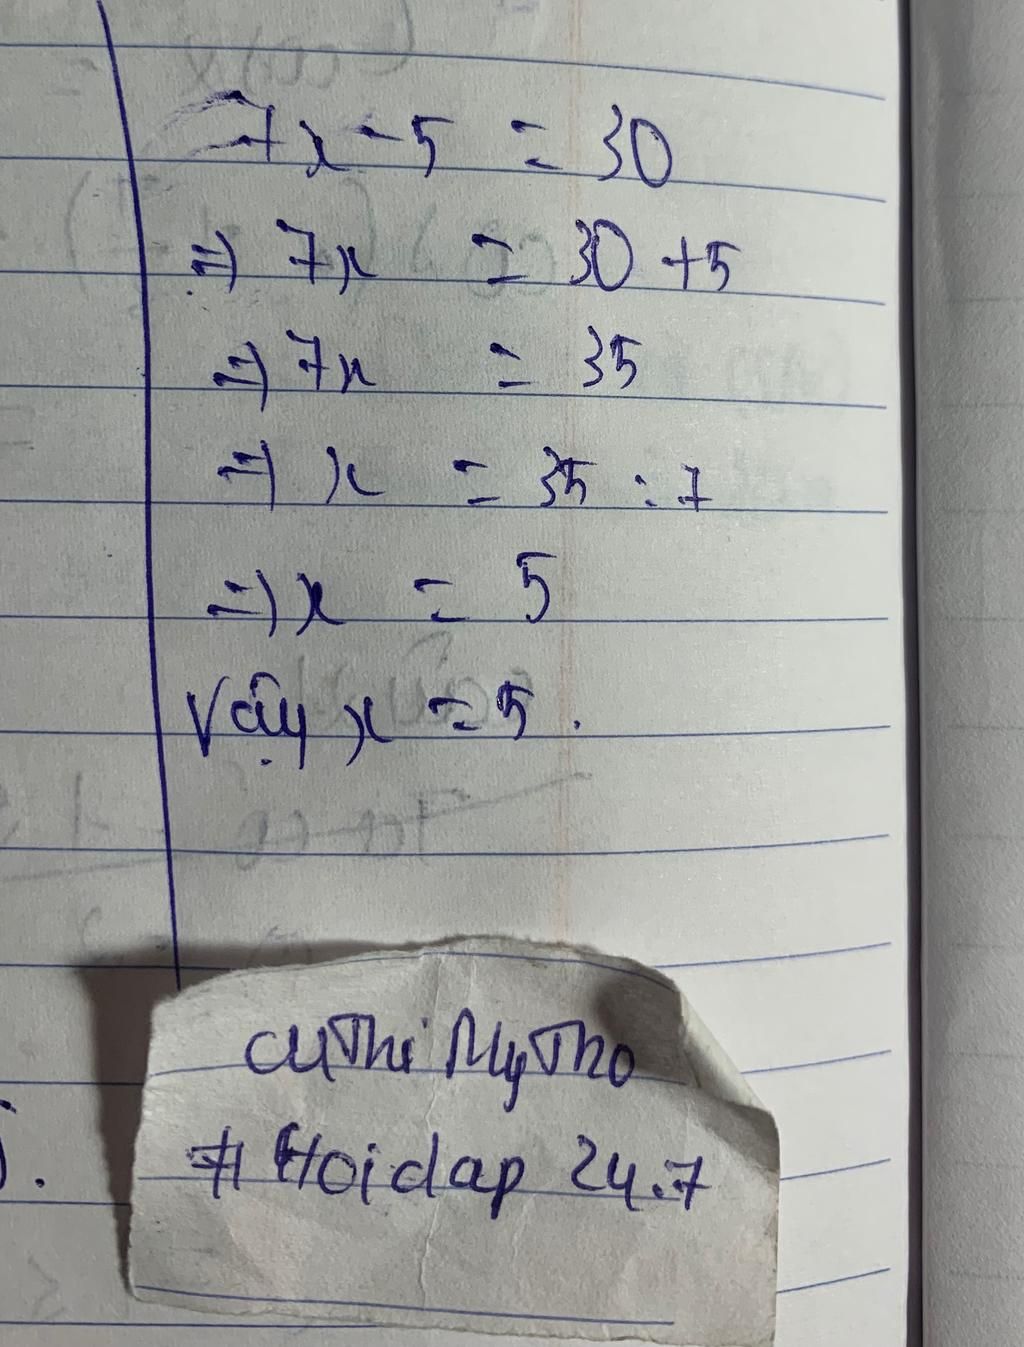 7x - 5 = 30
=> 7x = 30 + 5
=> 7x = 35
=> x = 35 : 7
=> x = 5
Vậy x = 5 .
cuThiMyTho
# Hoidap 24.7